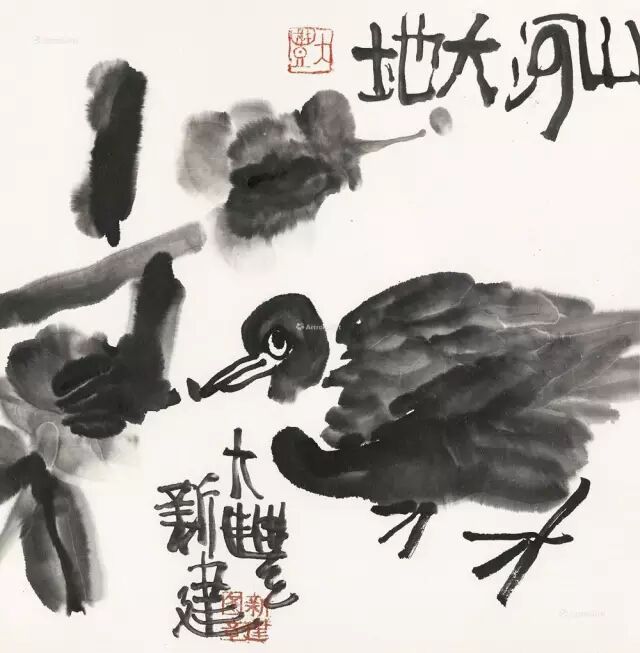 山河大地
大豐
大豐
新建
新建